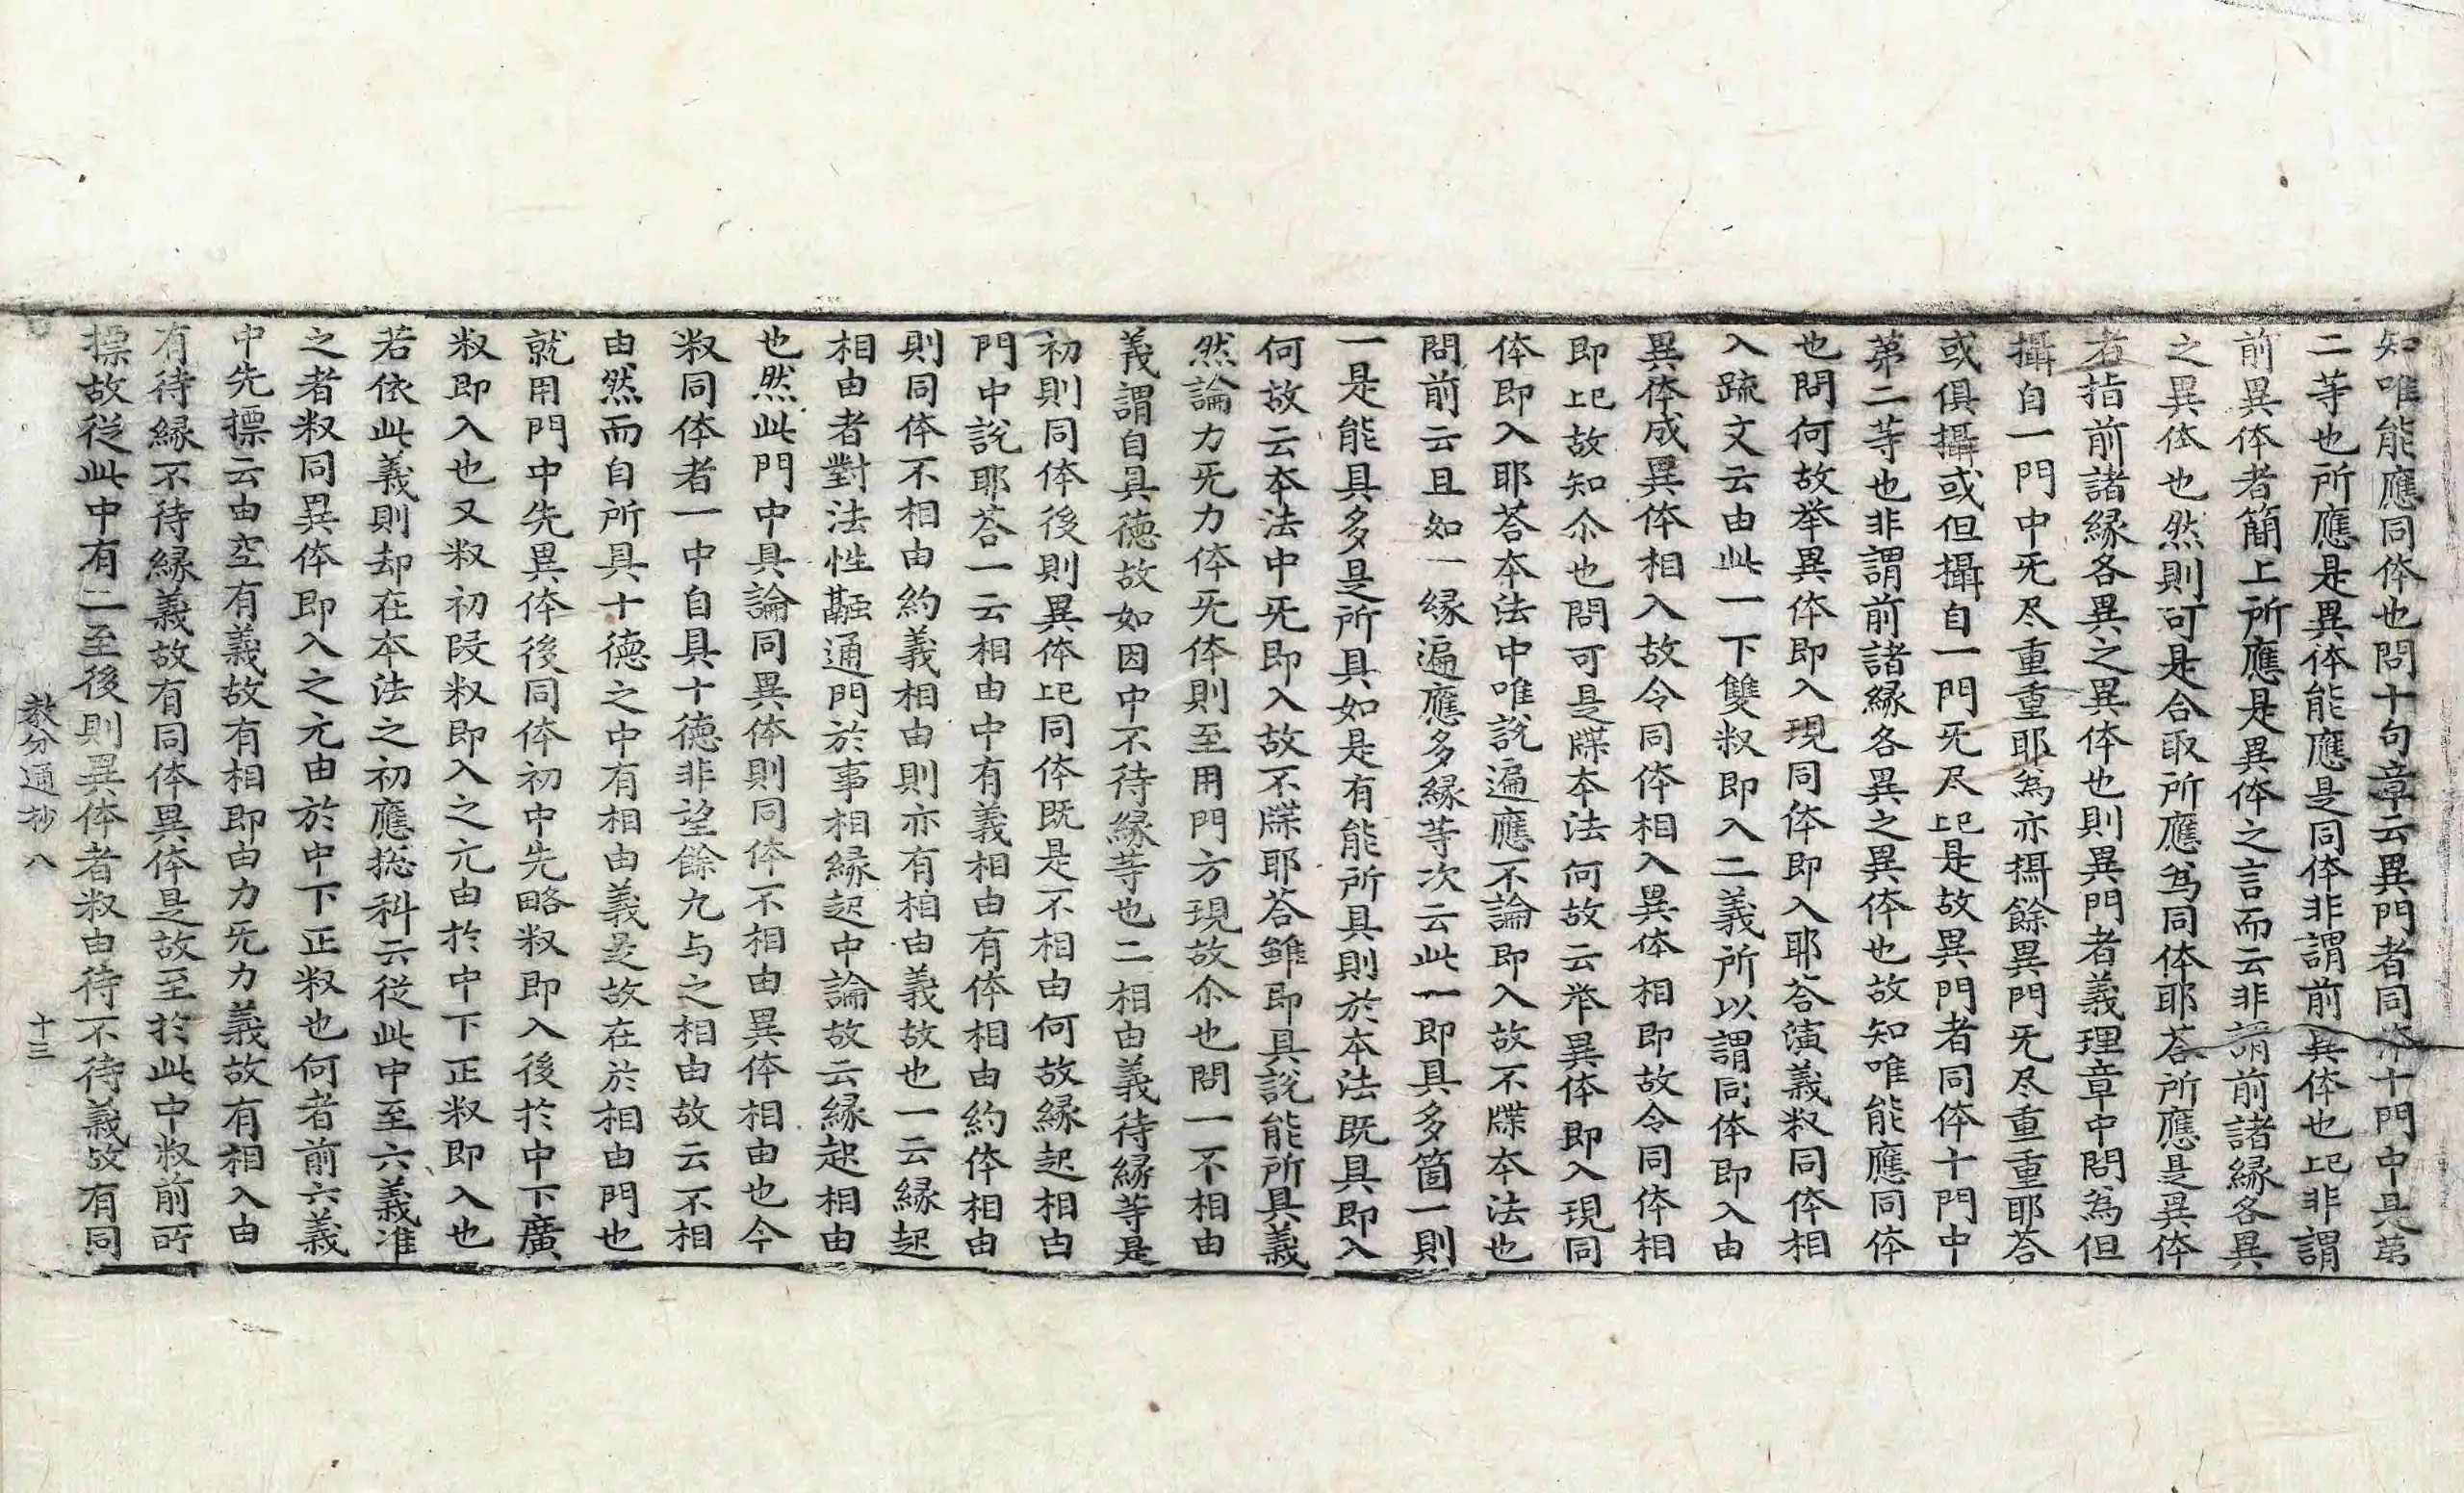 知唯能應同体也問十句章云異門者同体十門中是苐
二等也所應是異体能應是同体非謂前異体也記非謂
前異体者簡上所應是異体之言而云非謂前諸縁各異
之異体也然則可是合取所應爲同体耶荅所應是異体
者指前諸縁各異之異体也則異門者義理章中問爲但
攝自一門中旡尽重重耶爲亦攝餘異門旡尽重重耶荅
或俱攝或但攝自一門旡尽記是故異門者同体十門中
苐二等也非謂前諸縁各異之異体也故知唯能應同体
也問何故举異体即入現同体即入耶荅演義釈同体相
入䟽文云由此一下雙釈即入二義所以謂同体即入由
異体成異体相入故令同体相入異体相即故令同体相
即記故知尒也問可是牒本法何故云举異体即入現同
体即入耶荅本法中唯說遍應不論即入故不牒本法也
問前云且如一縁遍應多縁等次云此一即具多箇一則
一是能具多是所具如是有能所具則於本法既具即入
何故云本法中旡即入故不牒耶荅雖即具說能所具義
然論力旡力体旡体則至用門方現故尒也問一不相由
義謂自具德故如因中不待縁等也二相由義待縁等是
初則同体後則異体記同体既是不相由何故縁起相由
門中說耶荅一云相由中有義相由有体相由約体相由
則同体不相由約義相由則亦有相由義故也一云縁起
相由者對法性融通門於事相縁起中論故云縁起相由
也然此門中具論同異体則同体不相由異体相由也今
釈同体者一中自具十德非望餘九与之相由故云不相
由然而自所具十德之中有相由義是故在於相由門也
就用門中先異体後同体初中先略釈即入後扵中下廣
釈即入也又釈初段釈即入之元由扵中下正釈即入也
若依此義則却在本法之初應捴科云從此中至六義准
之者釈同異体即入之元由於中下正釈也何者前六義
中先摽云由空有義故有相即由力旡力義故有相入由
有待縁不待縁義故有同体異体是故至扵此中釈前所
摽故從此中有二至後則異体者釈由待不待義故有同
教分通抄八　十三